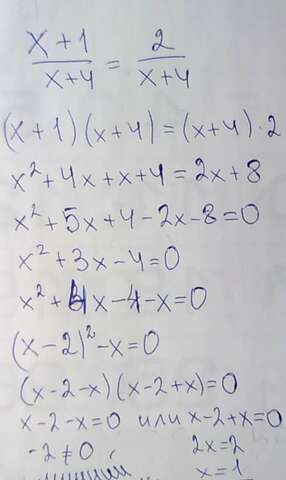 x+1/x+4 = 2/x+4
(x+1)(x+4)=(x+4)·2
x²+4x+x+4=2x+8
x²+5x+4-2x-8=0
x²+3x-4=0
x²+4x-4-x=0
(x-2)²-x=0
(x-2-x)(x-2+x)=0
x-2-x=0 или x-2+x=0
-2≠0 2x=2
x=1